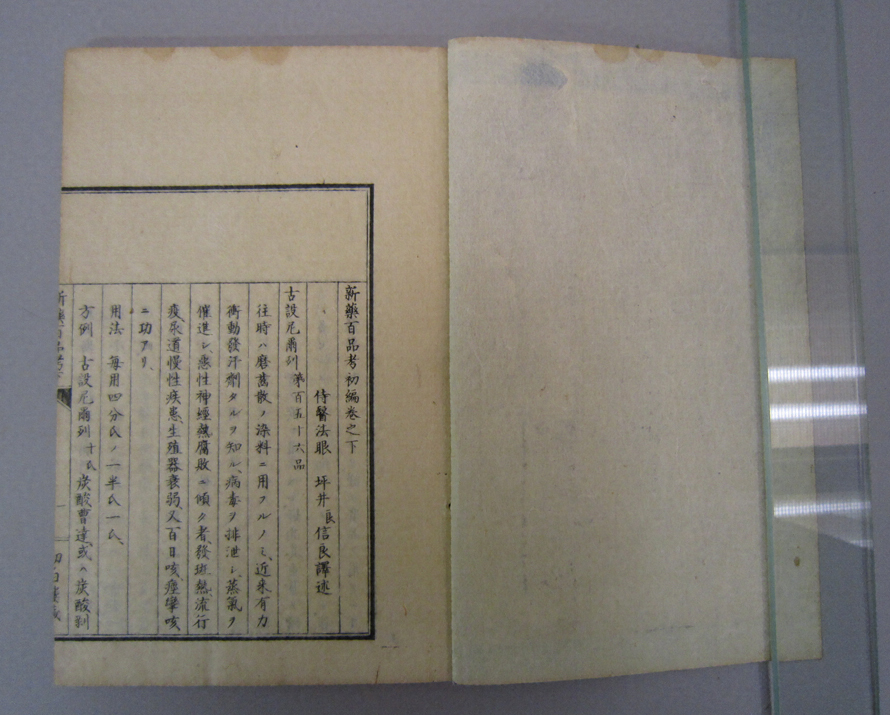 新藥百品考初編卷之下
侍醫法眼 坪井良信良譯述
古設尼爾列 第百五十六品
往時ハ磨萬散ノ染料ニ用フルノミ、近来有力
衝動發汗劑タルヲ知ル、病毒ヲ排泄シ、蒸氣ヲ
催進シ、悪性神經熱腐敗ニ傾ク者、發斑熱流行
疫、尿道慢性疾患、生殖器衰弱、又百日咳、痙攣咳
ニ功アリ、
用法 每用四分氏ノ一半氏一氏、
方例 古設尼爾列 十氏 炭酸曹達、或ハ炭酸剝
新藥百品考下